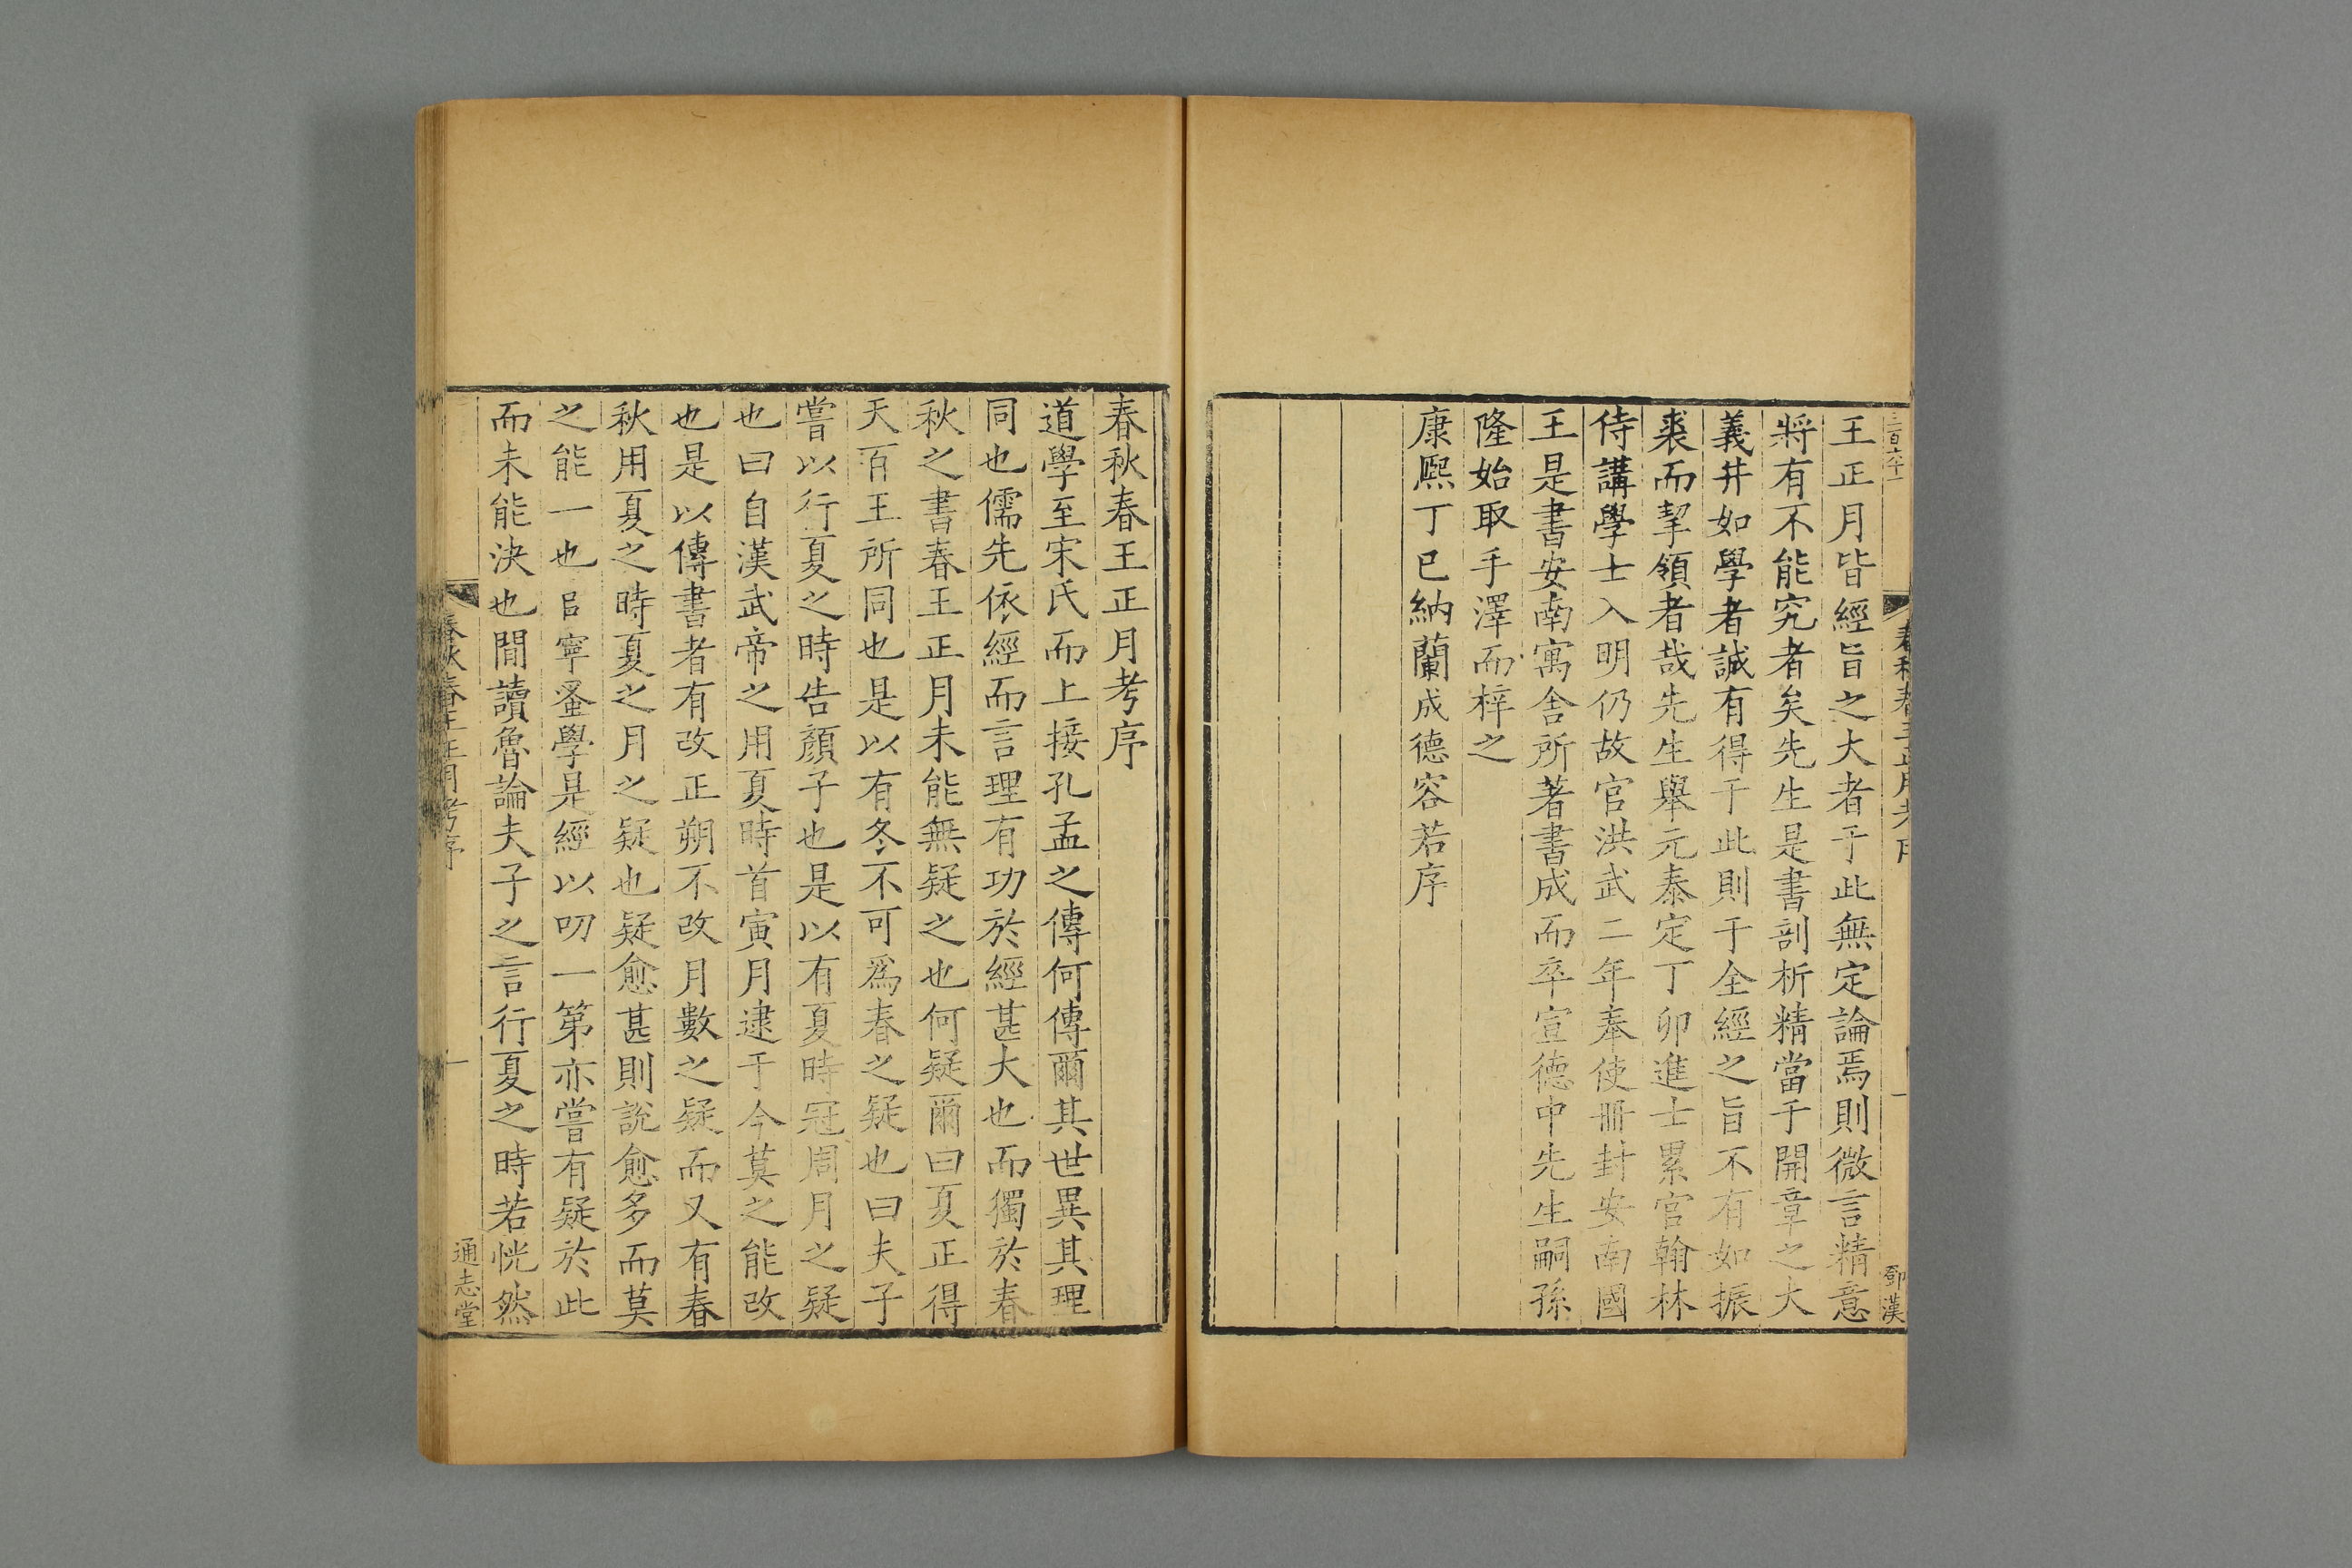 王正月皆經旨之大者于此無定論焉則微言精意
將有不能究者矣先生是書剖析精當于開章之大
義井如學者誠有得于此則于全經之旨不有如振
裘而挈領者哉先生舉元泰定丁卯進士累官翰林
侍講學士入明仍故官洪武二年奉使冊封安南國
王是書安南寓舍所著書成而卒宣德中先生嗣孫
隆始取手澤而梓之
康熙丁巳納蘭成德容若序
春秋春王正月考序
道學至宋氏而上接孔孟之傳何傳爾其世異其理
同也儒先依經而言理有功於經甚大也而獨於春
秋之書春王正月未能無疑之也何疑爾曰夏正得
天百王所同也是以有冬不可爲春之疑也曰夫子
嘗以行夏之時告顏子也是以有夏時冠周月之疑
也曰自漢武帝之用夏時首寅月逮于今莫之能改
也是以傳書者有改正朔不改月數之疑而又有春
秋用夏之時夏之月之疑也疑愈甚則說愈多而莫
之能一也㠯寧蚤學是經以叨一第亦嘗有疑於此
而未能決也閒讀魯論夫子之言行夏之時若恍然
春秋春王正月考序
一
通志堂